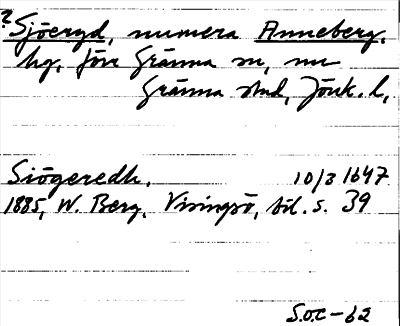 ? Sjöeryd, numera Anneberg.
hg, förr Gränna sn, nu
Gränna stad, Jönk. l,
Siögeredh. 10/3 1647
1885, W. Berg, Visingsö, bil. s. 39
S.O.C-62